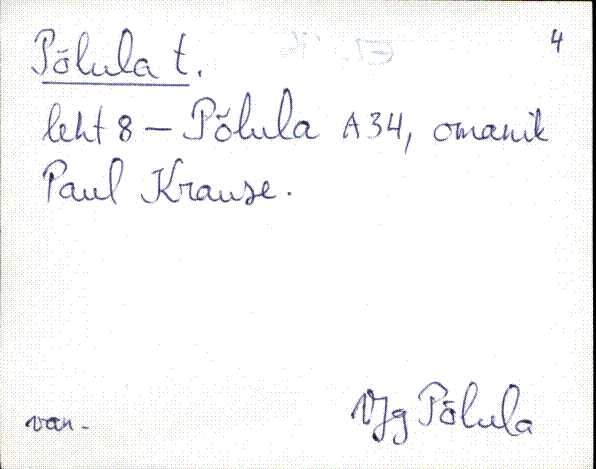 4
Põlula t.
leht 8 – Põlula A34, omanik
Paul Krause.
van.
VJg Põlula